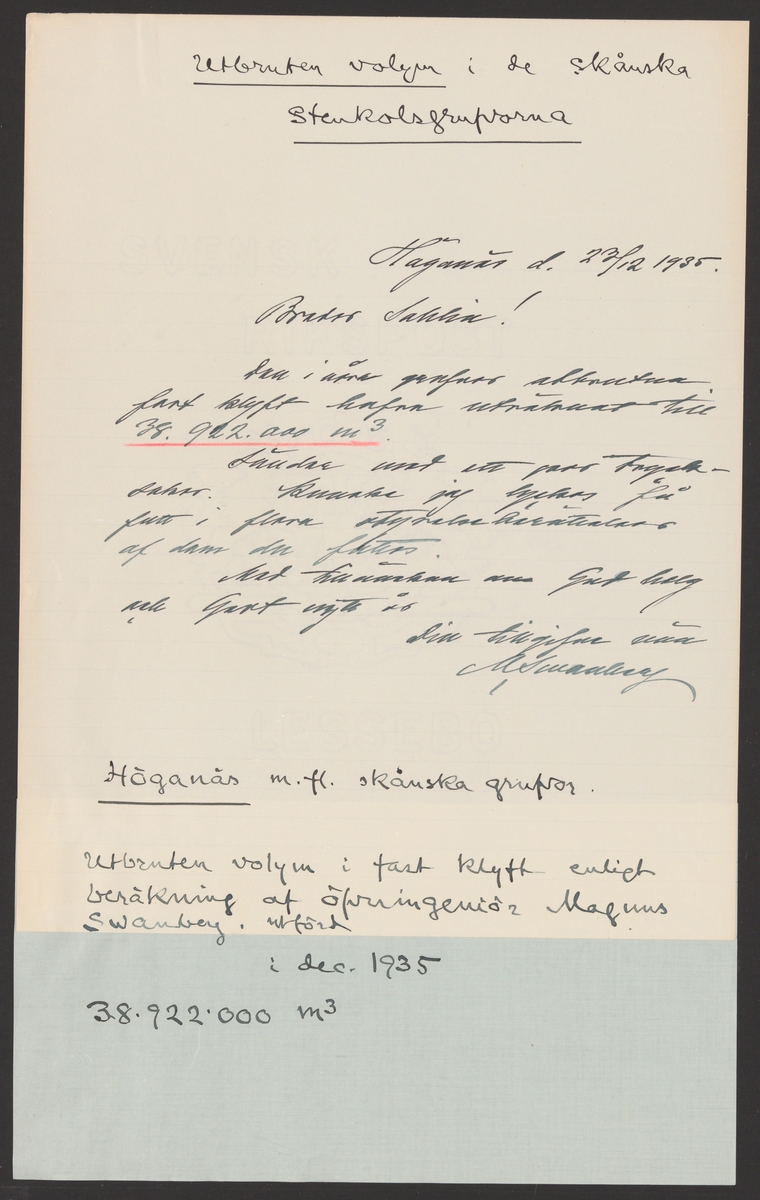 Utbruten volym i de skånska
stenkolsgrufvorna
Höganäs d. 23/12 1935.
Broder Sahlin!
Den i våra grufvor utbrutna
fast klyft hafva uträknats till
38.922.000 m³.
Sänder med ett par tryck-
saker. Kanske jag lyckas få
fatt i flera styrelseberättelser
af dem du fattas.
Med tillönskan om God helg
och Gott nytt år
Din tillgifne vän
M Swanberg
SVENSK
LESSEBO
Höganäs m.fl. skånska grufvor.
Utbruten volym i fast klyft enligt
beräkning af öfveringeniör Magnus
Swanberg. utförd
i dec. 1935
38.922.000 m³